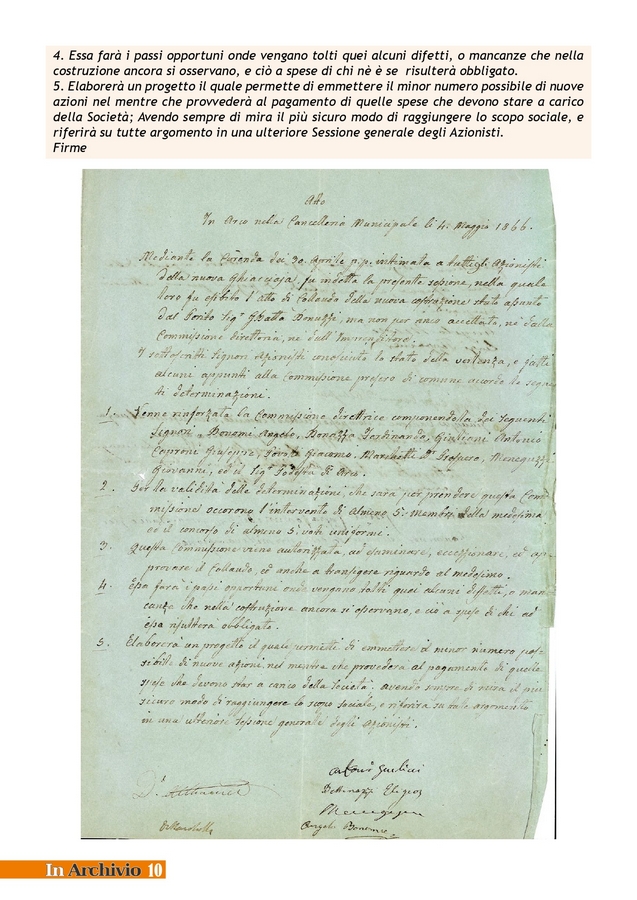 4. Essa farà i passi opportuni onde vengano tolti quei alcuni difetti, o mancanze che nella
costruzione ancora si osservano, e ciò a spese di chi nè è se risulterà obbligato.
5. Elaborerà un progetto il quale permette di emmettere il minor numero possibile di nuove
azioni nel mentre che provvederà al pagamento di quelle spese che devono stare a carico
della Società; Avendo sempre di mira il più sicuro modo di raggiungere lo scopo sociale, e
riferirà su tutte argomento in una ulteriore Sessione generale degli Azionisti.
Firme
Atto
In Arco nella Cancelleria Municipale li 4. Maggio 1866.
Mediante la Curenda dei 30. Aprile p.p. intimata a tutti gli Azionisti
della nuova Ghiacciaja, fu indetta la presente sessione, nella quale
loro fu esibito l'atto di Collaudo della nuova costruzione stato assunto
dal Perito Sigr Bonuzzi, ma non per anco accettato, ne dalla
Commissione direttoria, ne dall'Imprenditore.
I sottoscritti Signori Azionisti conosciuto lo stato della vertenza, e fatti
alcuni appunti alla Commissione presero di comune accordo le seguen
ti determinazioni.
1. Venne rinforzata la Commissione direttrice componendola dai seguenti
Signori, Bonomi Angelo, Bonazza Ferdinando, Giuliani Antonio
Caproni Giuseppe, Giacomo, Marchetti Dr Prospero, Meneguzzi
Giovanni, ed il Sigr Podestà di Arco.
2. Per la validità delle determinazioni, che sarà per prendere questa Com
missione occorono l'intervento di almeno 5. membri della medesima
ed il concorso di almeno 5. voti uniformi.
3. Questa Commissione viene autorizzata, ad esaminare, eccezionare, ed ap
provare il Collaudo, ed anche a transigere riguardo al medesimo.
4. Essa farà i passi opportuni onde vengano tolti quei alcuni diffetti, o man
canze che nella costruzione ancora si osservano, e ciò a spese di chi ad
essa risulterà obbligato.
5. Elaborerà un progetto il quale permetti di emmettere il minor numero pos
sibile di nuove azioni, nel mentre che provederà al pagamento di quelle
spese che devono star a carico della Società. avendo sempre di mira il piu
sicuro modo di raggiungere lo scopo sociale, e riferirà su tale argomento
in una ulteriore sessione generale degli Azionisti.
Antonio Giuliani
Angelo Bonomi
In Archivio 10